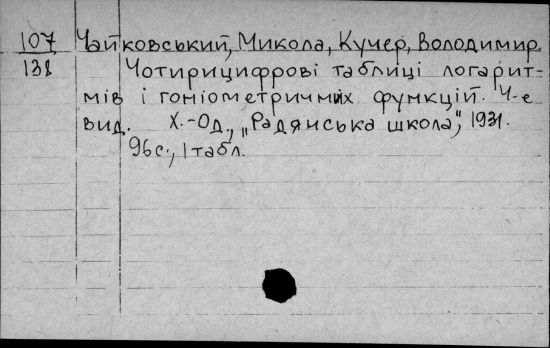 107 Чайковський, Микола, Кучер, Володимир.
138 Чотирицифрові таблиці логарит-
мів і гоніометричних функцій. 4-е
вид. Х.-Од., „Радянська школа", 1931.
96 с., 1 табл.